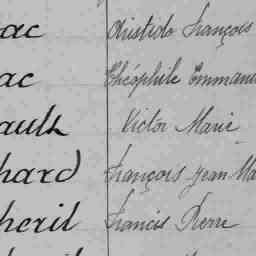 ac Aristide François
ac Théophile Emmanu
ault Victor Marie
hard François Jean Ma
heril Francis Pierre